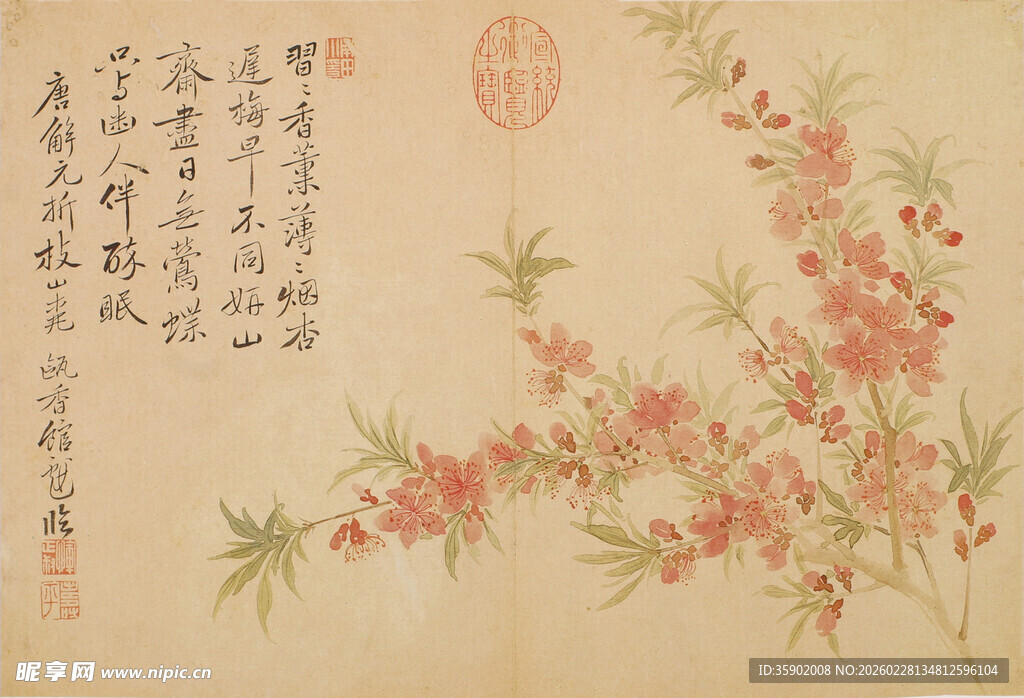 習〻香薰薄〻烟杏
遲梅早不同妍山
齋盡日無鶯蝶
只与幽人伴酔眠
唐解元折枝山桃 甌香館臨
宣統御覽之寶
昵享网 www.nipic.cn
ID:35902008 NO:20260228134812596104